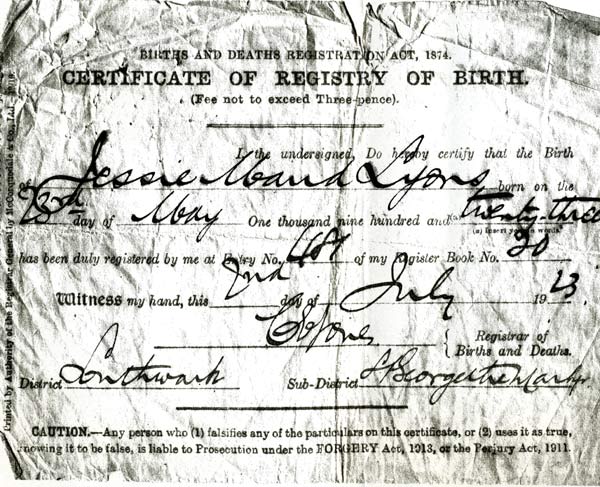 BIRTHS AND DEATHS REGISTRATION ACT, 1874.
CERTIFICATE OF REGISTRY OF BIRTH.
(Fee not to exceed Three-pence).
I, the undersigned, Do hereby certify that the Birth
of Jessie Maud Lyons born on the
23rd day of May One thousand nine hundred and (a) twenty-three
(a) Insert year in words.
has been duly registered by me at Entry No. of my Register Book No. 20
Witness my hand, this 2nd day of July 1923
Jones Registrar of
Births and Deaths.
District Southwark Sub-District St George the Martyr
CAUTION.—Any person who (1) falsifies any of the particulars on this certificate, or (2) uses it as true,
knowing it to be false, is liable to Prosecution under the FORGERY Act, 1913, or the Perjury Act, 1911.
Printed by Authority of the Registrar General by McCorquodale & Co., Ltd.